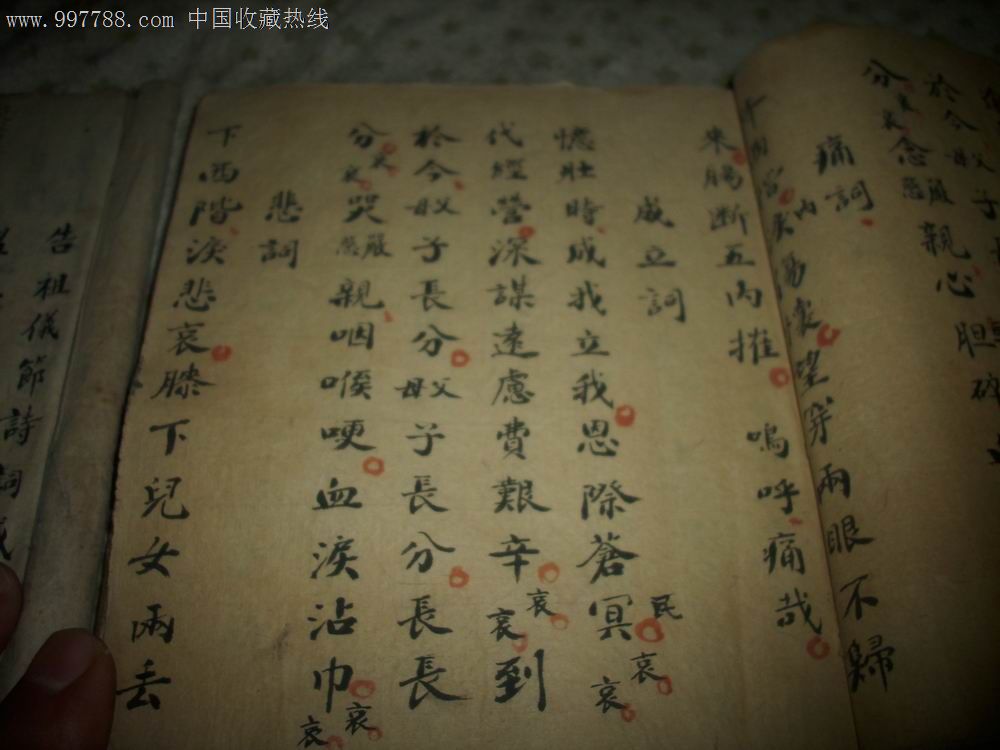 www.997788.com 中国收藏热线
於今父母子
分哀哀念嚴慈親心胆碎
痛詞
兩眼不歸
來腸断五內摧 嗚呼痛哉
成立詞
憶壯時成我立我恩際蒼冥民哀哀
代經營深謀遠慮費艱辛哀哀到
於今父母子長分父母子長分長長
分哀哀哭嚴慈親咽喉哽血淚沾巾哀哀
悲詞
下西階淚悲哀膝下兒女兩丢
告祖儀節詩詞